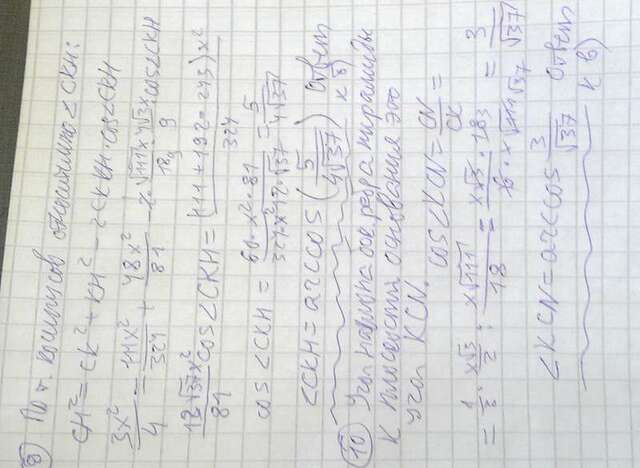 9) По т. косинусов относительно <CKH:
CH² = CK² + KH² - 2CK·KH·cos<CKH
3x²/4 = 111x²/324 + 48x²/81 - 2·√111x·4√3x·cos<CKH/18·9
12√37x²/81 cos<CKH = (111+192-243)x²/324
cos<CKH = 60·x²·81/324·x²·12·√37 = 5/4√37
<CKH = arccos(5/4√37) Ответ к б)
10) Угол наклона бок. ребра пирамиды
к плоскости основания это
угол KCN. cos<KCN = CN/CK =
= 1/3 · x√3/2 : x√111/18 = x√3·18/6·x√111 = 3/√37
<KCN = arccos 3/√37 Ответ к в)